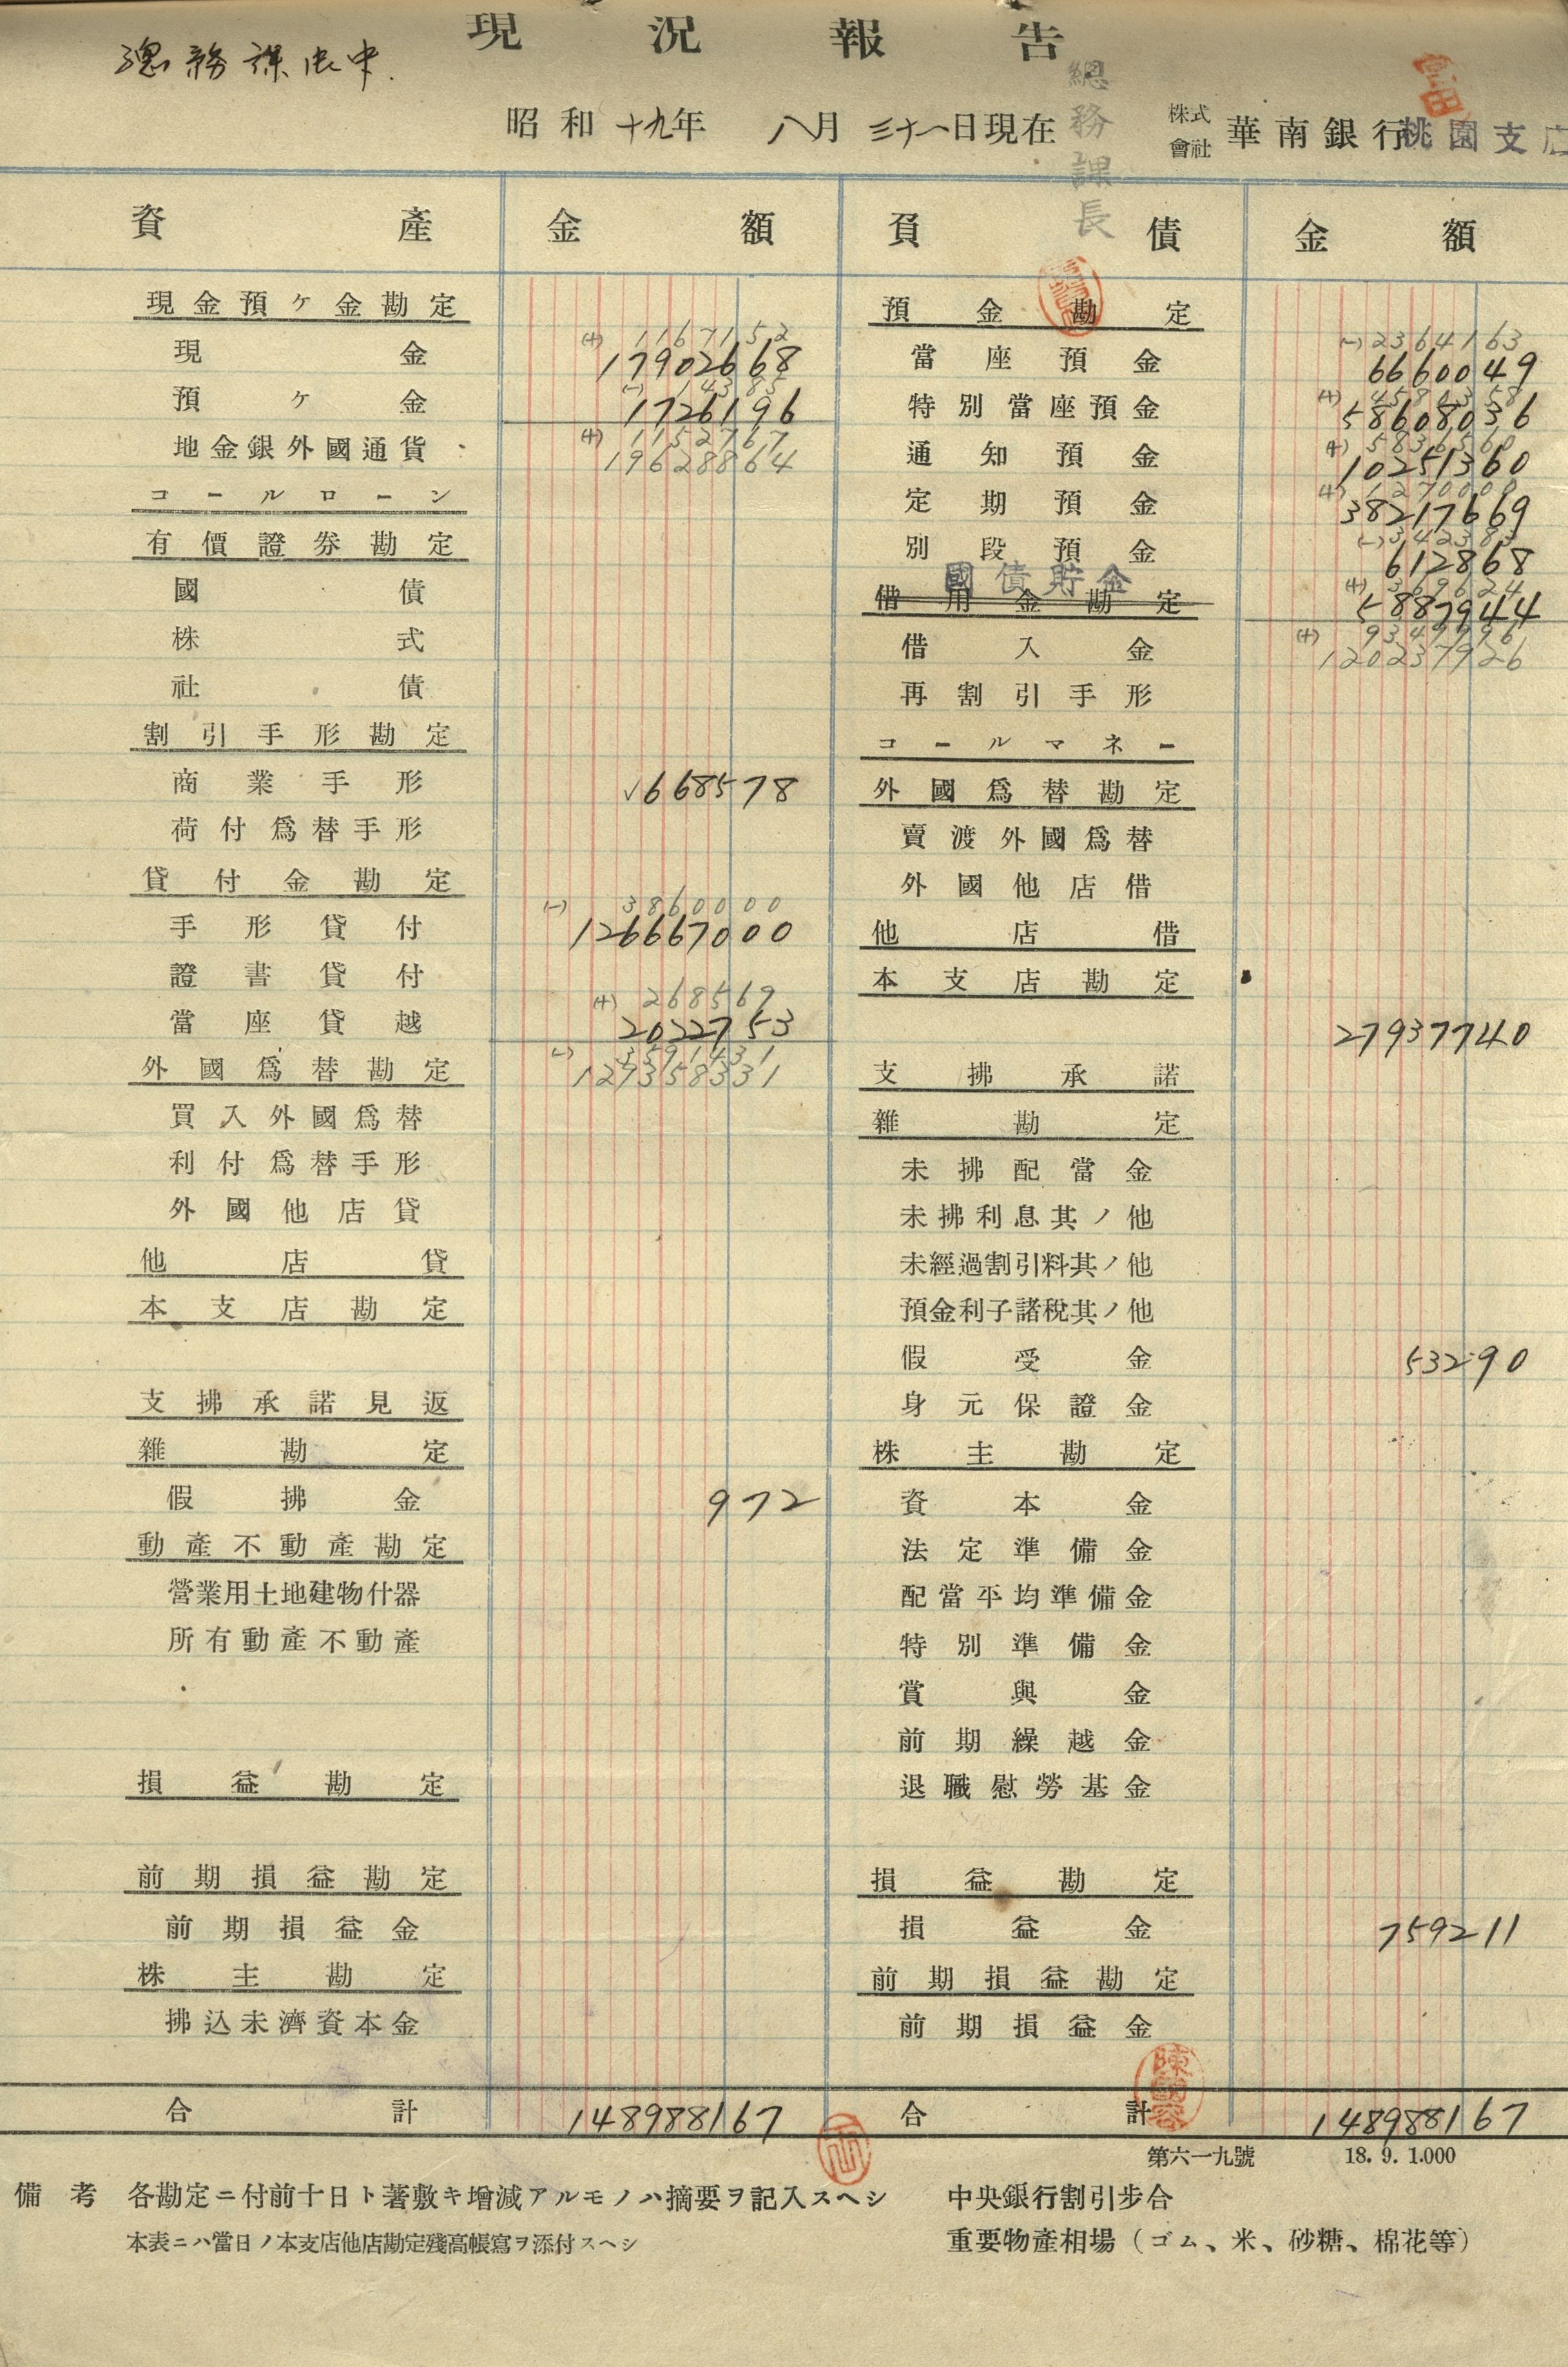 現況報告
總務課御中
昭和十九年 八月三十一日現在
總務課長
株式會社 華南銀行桃園支店
資産 金額
現金預ケ金勘定
(+) 1167152
現金 17902668
(-) 14385
預ケ金 1726196
(+) 1152767
地金銀外國通貨 19628864
コールローン
有價證券勘定
國債
株式
社債
割引手形勘定
商業手形 √668578
荷付爲替手形
貸付金勘定
(-) 3860000
手形貸付 126667000
證書貸付
(+) 268569
當座貸越 2022753
(-) 3591431
外國爲替勘定 129358331
買入外國爲替
利付爲替手形
外國他店貸
他店貸
本支店勘定
支拂承諾見返
雜勘定
假拂金 972
動產不動產勘定
營業用土地建物什器
所有動產不動產
損益勘定
前期損益勘定
前期損益金
株主勘定
拂込未濟資本金
合計 148988167
負債 金額
預金勘定
(-) 2364163
當座預金 6660049
(+) 4580358
特別當座預金 58608036
(+) 5836560
通知預金 10251360
(+) 1270000
定期預金 38217669
(-) 342383
別段預金 612868
國債貯金
(+) 369624
借用金勘定 5887944
(+) 9349996
借入金 120237926
再割引手形
コールマネー
外國爲替勘定
賣渡外國爲替
外國他店借
他店借
本支店勘定
27937740
支拂承諾
雜勘定
未拂配當金
未拂利息其ノ他
未經過割引料其ノ他
預金利子諸稅其ノ他
假受金 53290
身元保證金
株主勘定
資本金
法定準備金
配當平均準備金
特別準備金
賞與金
前期繰越金
退職慰勞基金
損益勘定
損益金 759211
前期損益勘定
前期損益金
合計 148988167
第六一九號 18.9.1.000
備考 各勘定ニ付前十日ト著敷キ增減アルモノハ摘要ヲ記入スヘシ
本表ニハ當日ノ本支店他店勘定殘高帳寫ヲ添付スヘシ
中央銀行割引步合
重要物產相場（ゴム、米、砂糖、棉花等）